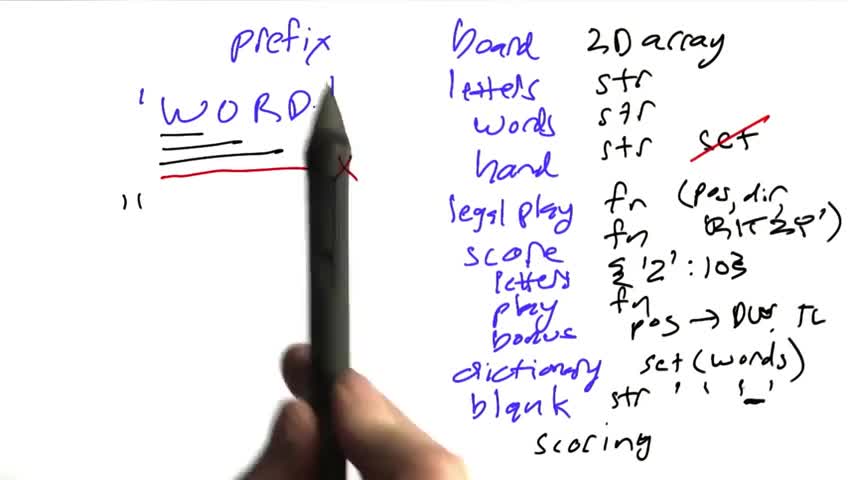 prefix
'WORD'
''
board 2D array
letters str
words str
hand str set
legal play fn (pos, dir,
fn 'RITZY')
score
letters {'Z':10}
play fn
bonus pos → DW, TL
dictionary set(words)
blank str ' ' '_'
scoring